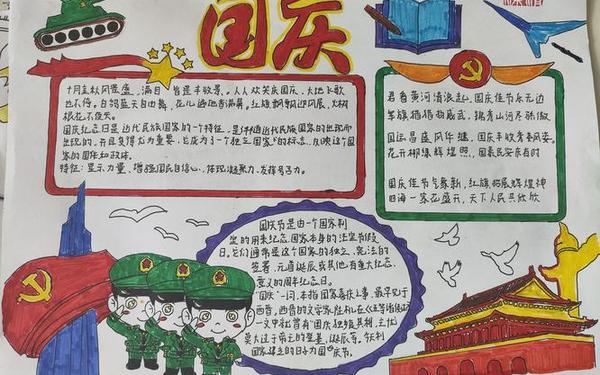 国庆
十月金秋风景盛,满目皆是丰收景。人人欢笑庆国庆,大地飞歌
也不停。白鸽蓝天自由舞,花儿遍地香满屏。红旗飘飘迎风展,火树
银花不夜天。
国庆纪念日是近代民族国家的一个特征,是伴随近代民族国家的出现而
出现的,并且变得尤为重要,它成为了一个独立国家的标志,反映这个国
家的国体和政体。
特征:显示力量,增强国民自信心,体现凝聚力,发挥号召力。
君看黄河清浪起,国庆佳节乐无边
军旗猎猎扬威武,锦青山河
国运昌盛风华继,国庆丰收
花开柳绿辉煌照,国泰民安
国庆佳节气象新,红旗招展辉煌神
四海一家花盛开,天下人民共欣欣
国庆节是由一个国家制
定的用来纪念国家本身的法定节假
日。它们通常是这个国家的独立、宪法的
签署、元首诞辰或其他有重大纪念
意义的周年纪念日。
"国庆"一词,本指国家喜庆之事,最早见于
西晋。西晋的文学家陆机在《五等诸侯论》
一文中就曾有"国庆独飨其利,主忧
莫与
国家建立的日子为国庆节。